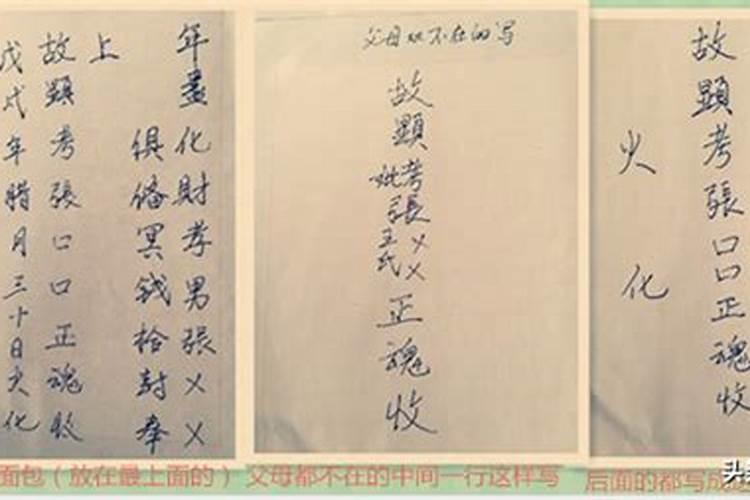 年盡化財孝男張××
俱俻冥錢拾封奉
上
故顯考張口口正魂收
戊戌年腊月三十日火化
父母妣不在的写
故顯考妣張××王氏正魂收
故顯考張口口正魂收
火化
面包（放在最上面的）
父母都不在的中间一行这样写
后面的都写成